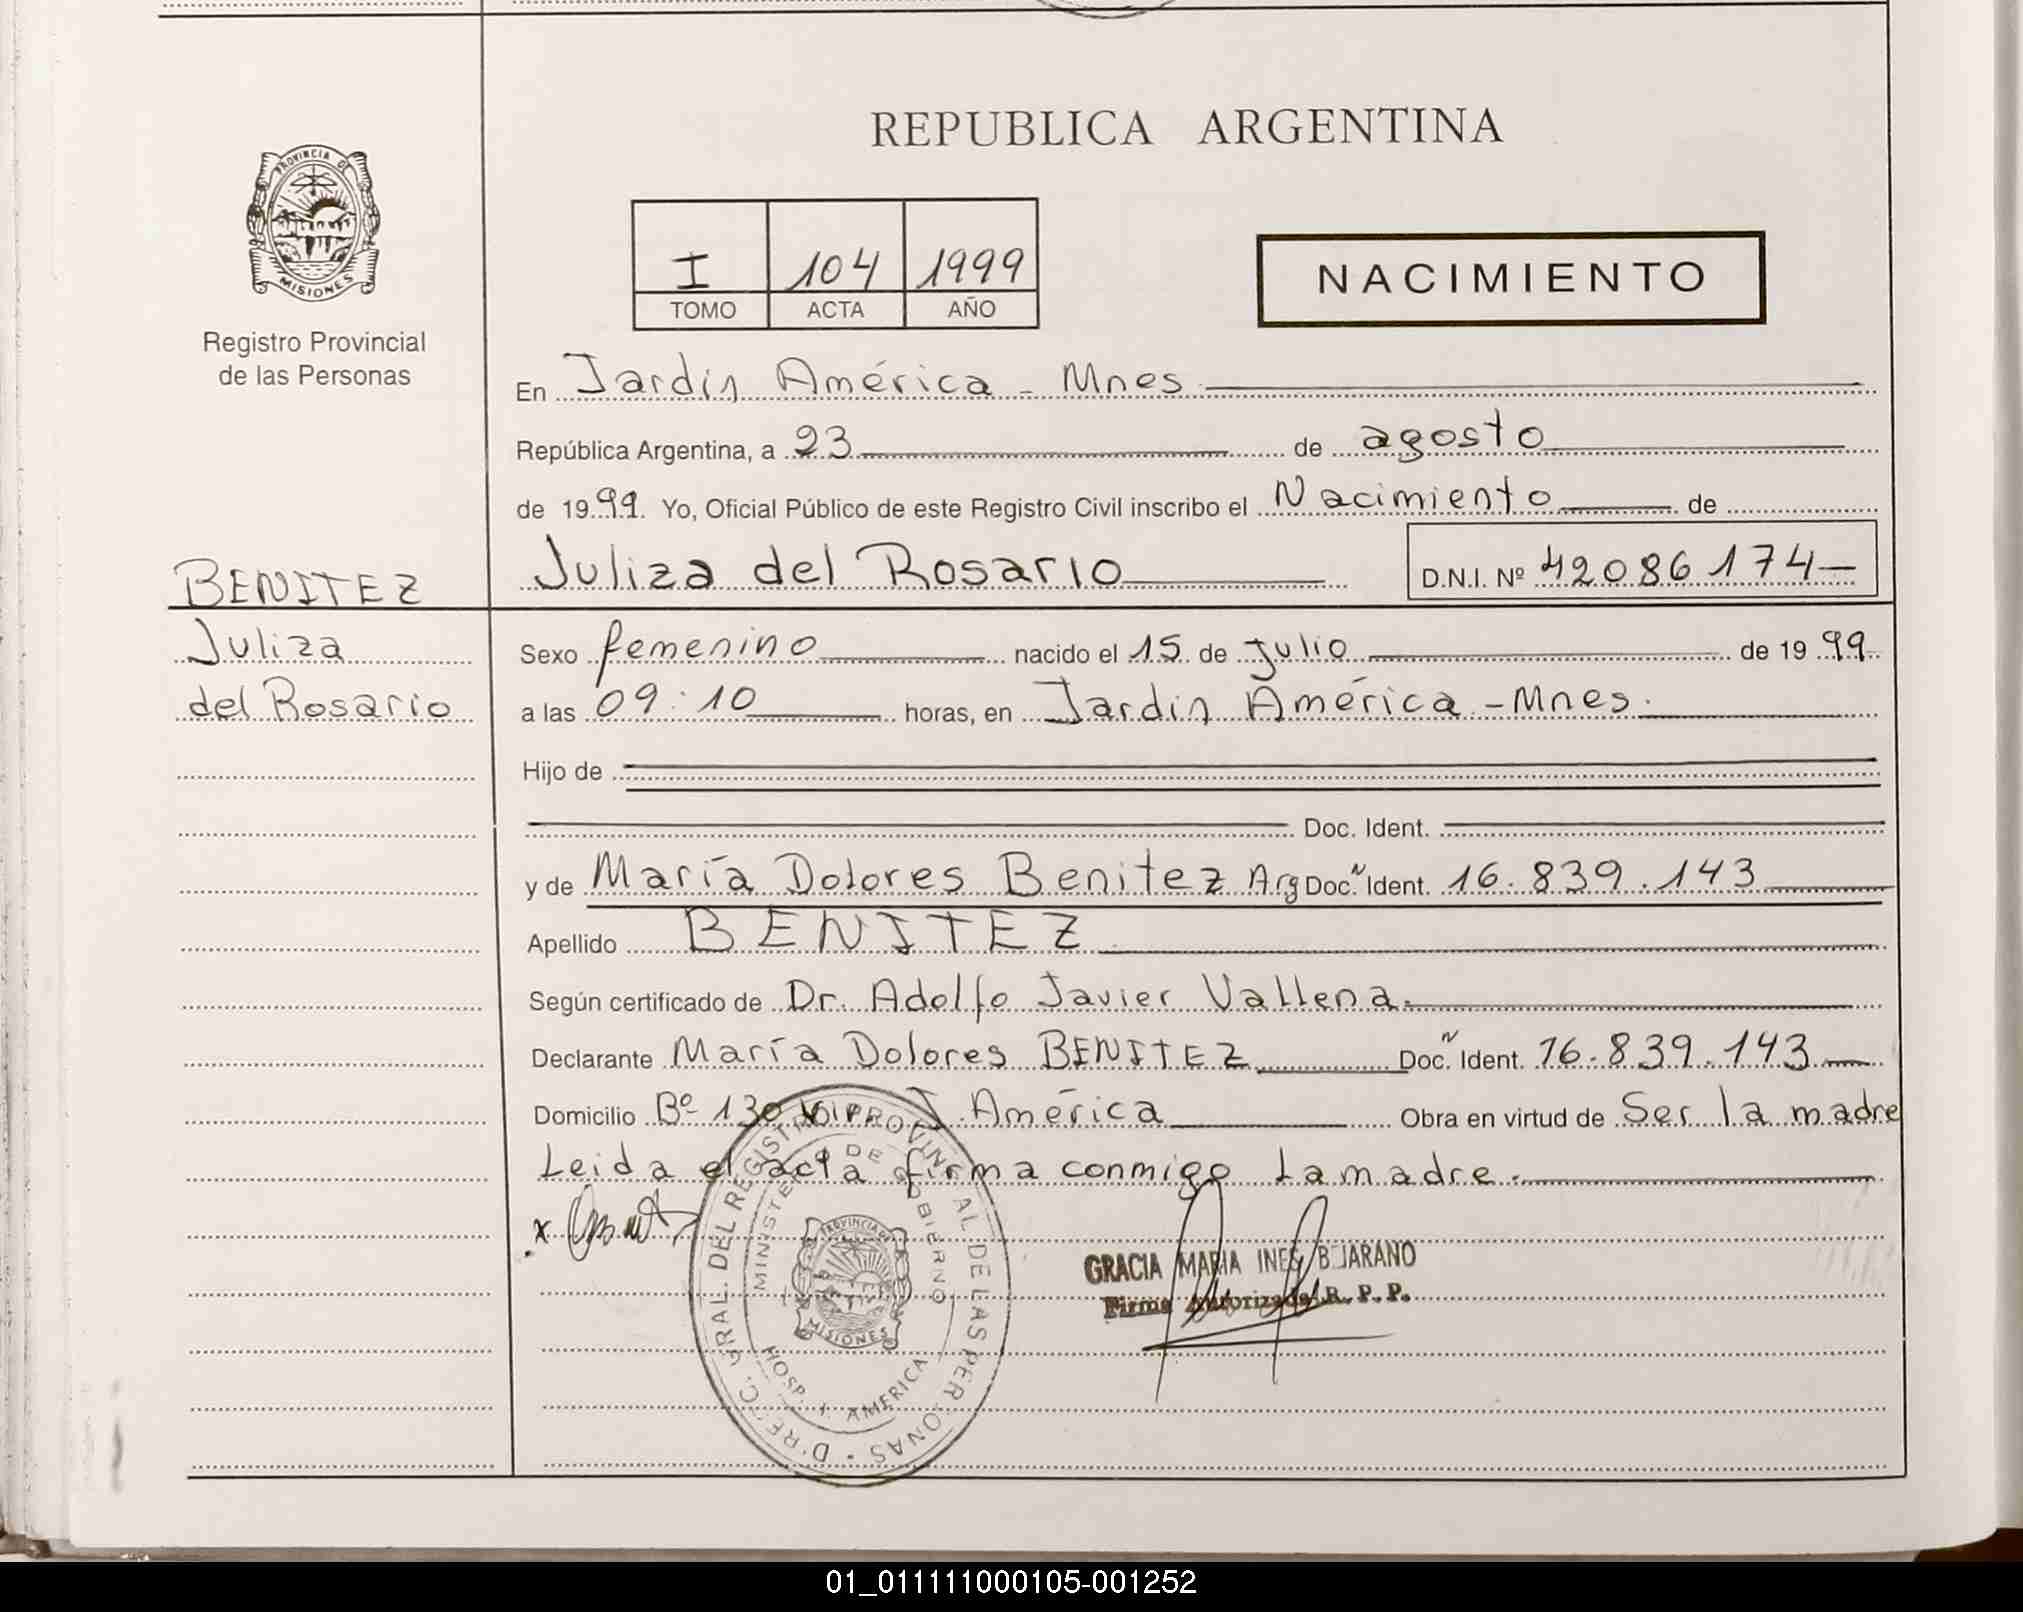 REPUBLICA ARGENTINA
PROVINCIA DE
MISIONES
Registro Provincial
de las Personas
I 104 1999
TOMO ACTA AÑO
NACIMIENTO
En Jardín América - Mnes.
República Argentina, a 23 de agosto
de 1999. Yo, Oficial Público de este Registro Civil inscribo el Nacimiento de
BENITEZ
Juliza del Rosario D.N.I. Nº 42086174
Juliza
del Rosario
Sexo femenino nacido el 15 de julio de 1999
a las 09:10 horas, en Jardín América - Mnes.
Hijo de
Doc. Ident.
y de María Dolores Benitez Arg Doc. Ident. 16.839.143
Apellido BENITEZ
Según certificado de Dr. Adolfo Javier Vallena.
Declarante María Dolores BENITEZ Doc. Ident. 16.839.143
Domicilio Bº 130 Viv. J. América Obra en virtud de Ser la madre
Leida el acta firma conmigo La madre.
x
GRACIA MARIA INES BEJARANO
Firma Autorizada R. P. P.
DIREC. GRAL. DEL REGISTRO PROVINCIAL DE LAS PERSONAS
MINISTERIO DE GOBIERNO
PROVINCIA DE
MISIONES
HOSP. J. AMERICA
01_011111000105-001252